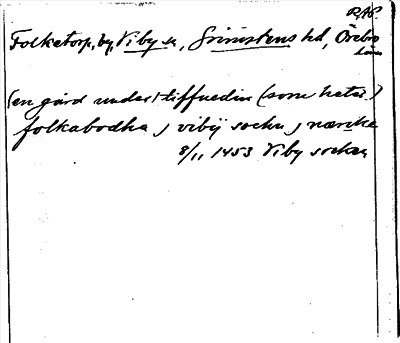 RAP.
Folketorp, by, Viby sn, Grimstens hd, Örebro
län
(en gård under tiffuedin (som heter)
folkabodha j vibÿ sochn j nærike
8/11 1453 Viby socken